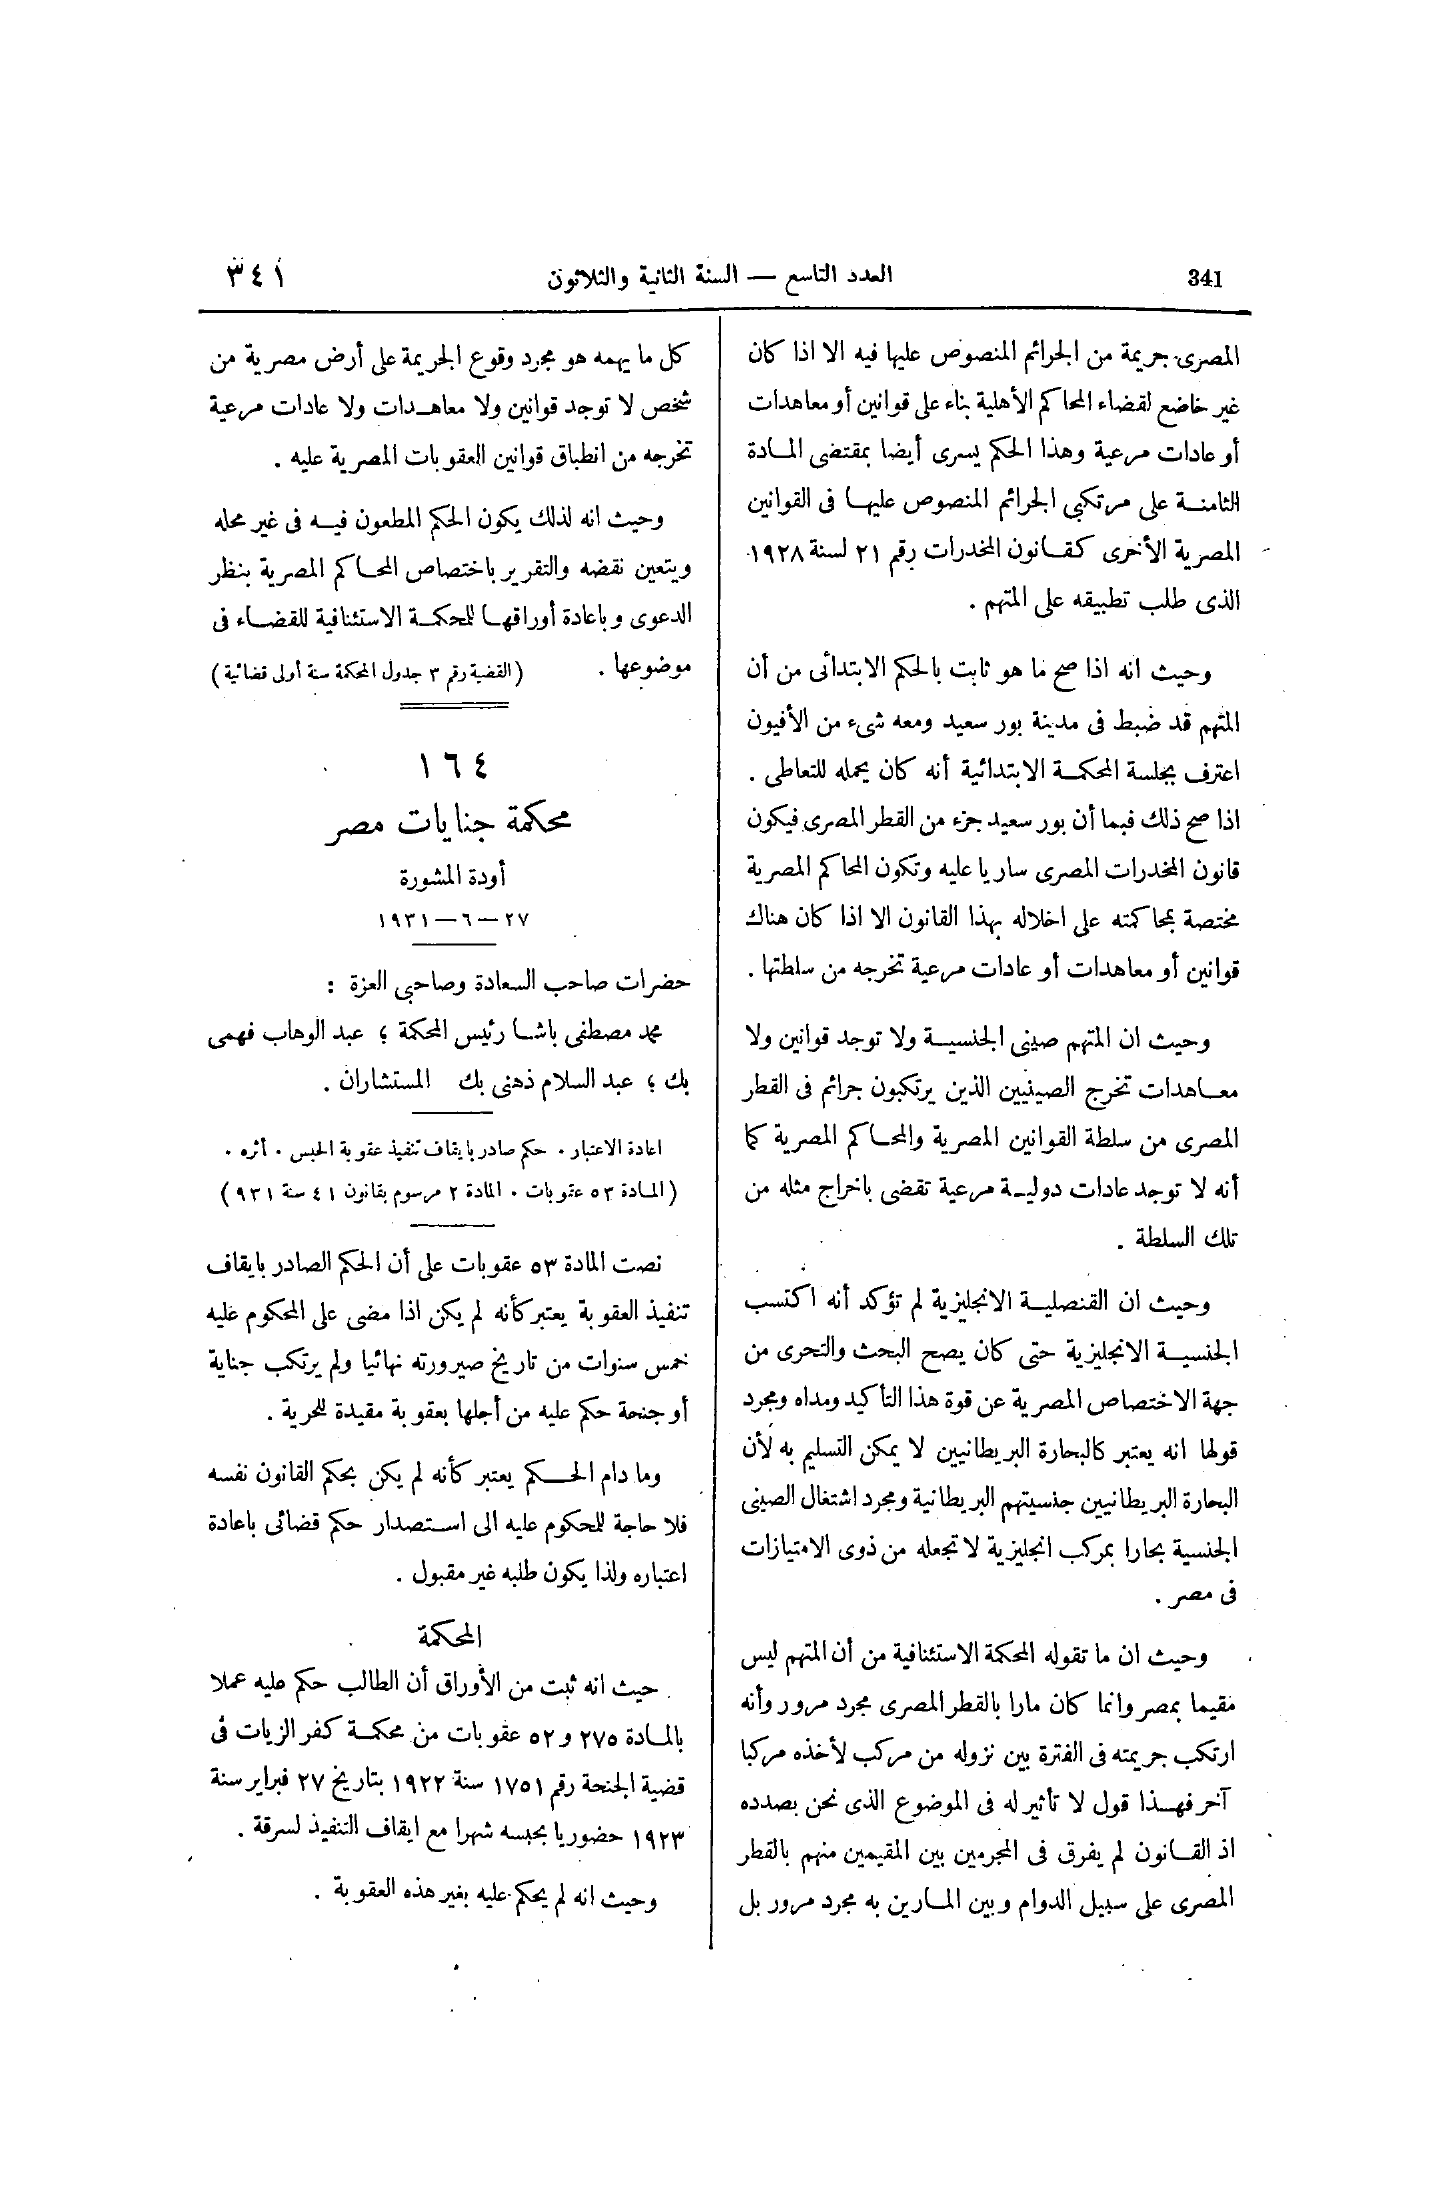 341
العدد التاسع — السنة الثانية والثلاثون
٣٤١
المصرى جريمة من الجرائم المنصوص عليها فيه الا اذا كان
غير خاضع لقضاء المحاكم الأهلية بناء على قوانين أو معاهدات
أو عادات مرعية وهذا الحكم يسرى أيضا بمقتضى المادة
الثامنة على مرتكبي الجرائم المنصوص عليها فى القوانين
المصرية الأخرى كقانون المخدرات رقم ٢١ لسنة ١٩٢٨
الذى طلب تطبيقه على المتهم .
وحيث انه اذا صح ما هو ثابت بالحكم الابتدائى من أن
المتهم قد ضبط فى مدينة بور سعيد ومعه شىء من الأفيون
اعترف بجلسة المحكمة الابتدائية أنه كان يحمله للتعاطى .
اذا صح ذلك فبما أن بور سعيد جزء من القطر المصرى فيكون
قانون المخدرات المصرى ساريا عليه وتكون المحاكم المصرية
مختصة بمحاكمته على اخلاله بهذا القانون الا اذا كان هناك
قوانين أو معاهدات أو عادات مرعية تخرجه من سلطتها .
وحيث ان المتهم صينى الجنسية ولا توجد قوانين ولا
معاهدات تخرج الصينيين الذين يرتكبون جرائم فى القطر
المصرى من سلطة القوانين المصرية والمحاكم المصرية كما
أنه لا توجد عادات دولية مرعية تقضى باخراج مثله من
تلك السلطة .
وحيث ان القنصلية الانجليزية لم تؤكد أنه اكتسب
الجنسية الانجليزية حتى كان يصح البحث والتحرى من
جهة الاختصاص المصرية عن قوة هذا التأكيد ومداه ومجرد
قولها انه يعتبر كالبحارة البريطانيين لا يمكن التسليم به لأن
البحارة البريطانيين جنسيتهم البريطانية ومجرد اشتغال الصينى
الجنسية بحارا بمركب انجليزية لا تجعله من ذوى الامتيازات
فى مصر .
وحيث ان ما تقوله المحكمة الاستئنافية من أن المتهم ليس
مقيما بمصر وانما كان مارا بالقطر المصرى مجرد مرور وأنه
ارتكب جريمته فى الفترة بين نزوله من مركب لأخذه مركبا
آخر فهذا قول لا تأثير له فى الموضوع الذى نحن بصدده
اذ القانون لم يفرق فى المجرمين بين المقيمين منهم بالقطر
المصرى على سبيل الدوام وبين المارين به مجرد مرور بل
كل ما يهمه هو مجرد وقوع الجريمة على أرض مصرية من
شخص لا توجد قوانين ولا معاهدات ولا عادات مرعية
تخرجه من انطباق قوانين العقوبات المصرية عليه .
وحيث انه لذلك يكون الحكم المطعون فيه فى غير محله
ويتعين نقضه والتقرير باختصاص المحاكم المصرية بنظر
الدعوى وباعادة أوراقها للمحكمة الاستئنافية للقضاء فى
موضوعها . (القضية رقم ٣ جدول المحكمة سنة أولى قضائية)
١٦٤
محكمة جنايات مصر
أودة المشورة
٢٧ — ٦ — ١٩٣١
حضرات صاحب السعادة وصاحبى العزة :
محمد مصطفى باشا رئيس المحكمة ؛ عبد الوهاب فهمى
بك ؛ عبد السلام ذهنى بك المستشاران .
اعادة الاعتبار . حكم صادر بايقاف تنفيذ عقوبة الحبس . أثره .
(المادة ٥٣ عقوبات . المادة ٢ مرسوم بقانون ٤١ سنة ٩٣١)
نصت المادة ٥٣ عقوبات على أن الحكم الصادر بايقاف
تنفيذ العقوبة يعتبر كأنه لم يكن اذا مضى على المحكوم عليه
خمس سنوات من تاريخ صيرورته نهائيا ولم يرتكب جناية
أو جنحة حكم عليه من أجلها بعقوبة مقيدة للحرية .
وما دام الحكم يعتبر كأنه لم يكن بحكم القانون نفسه
فلا حاجة للمحكوم عليه الى استصدار حكم قضائى باعادة
اعتباره ولذا يكون طلبه غير مقبول .
المحكمة
حيث انه ثبت من الأوراق أن الطالب حكم عليه عملا
بالمادة ٢٧٥ و ٥٢ عقوبات من محكمة كفر الزيات فى
قضية الجنحة رقم ١٧٥١ سنة ١٩٢٢ بتاريخ ٢٧ فبراير سنة
١٩٢٣ حضوريا بحبسه شهرا مع ايقاف التنفيذ لسرقة .
وحيث انه لم يحكم عليه بغير هذه العقوبة .